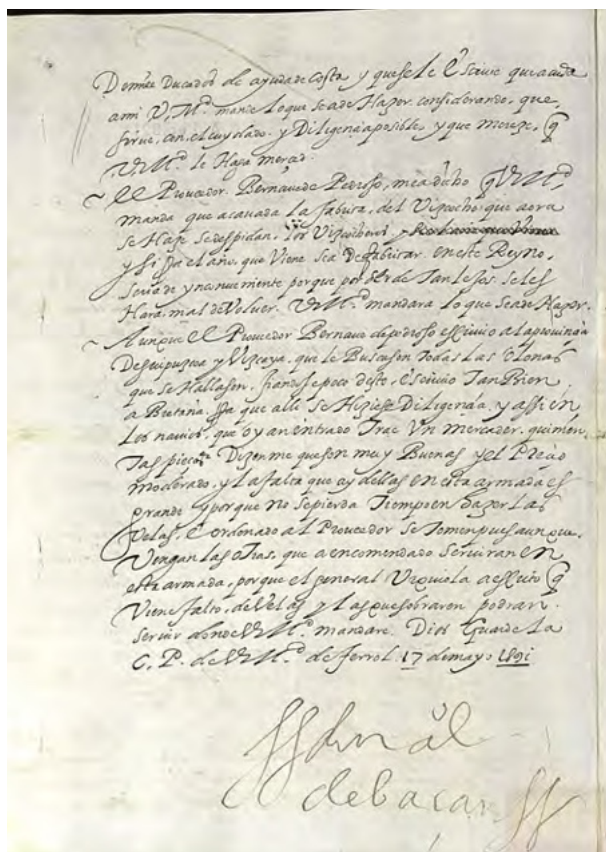 Ducados de ayuda de costa y que se le Escriue que acuda
a mi V. Mᵈ. mande lo que se a de Hazer, considerando, que
sirue, con el cuydado, y Diligençia posible, y que mereze, q̃
V. Mᵈ. le Haga merçed.
El Proueedor Bernaue de Pedroso, me a dicho q̃ V. Mᵈ.
manda que acauada la fabrica, del Vizcocho que aora
se Haze se despidan, los Vizcocheros y
y si pa el año, que Viene se a De fabricar en este Reyno,
sera de ynconueniente porque por ser de Tan lexos, se les
Hara mal de Voluer. V. Mᵈ. mandara lo que se a de Hazer.
Aunque El Proueedor Bernaue de pedroso escriuio a la prouinçia
De guipuzcoa y Vizcaya, que le Buscasen Todas Las Olonas
que se Hallasen, fiandose poco desto, Escriuio Tan Bien
a Bretaña, pa que alli se Hiziese Diligençia, y assi en
Los nauios, que oy an entrado Trae Vn mercader, quinien
tas pieças Dizenme que son muy Buenas y el Preçio
moderado, y La falta que ay dellas en esta armada es
grande y porque no se pierda Tiempo en hazer Las
Velas, E ordenado al Proueedor se Tomen pues aunque
Vengan Las otras, que a encomendado seruiran en
esta armada, porque el general Vrquiola a escrito q̃
Viene falto, de Velas y Las que sobraren podran
seruir donde V. Mᵈ. mandare. Dios Guarde La
C. P. de V. Mᵈ. de ferrol 17 de mayo 1591
de baçan